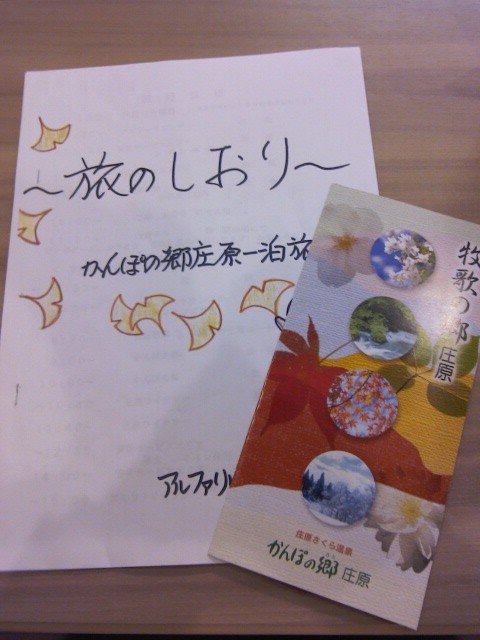 ～旅のしおり～
かんぽの郷庄原一泊旅
アルファリ
牧歌の郷 庄原
庄原さくら温泉
かんぽの郷 庄原